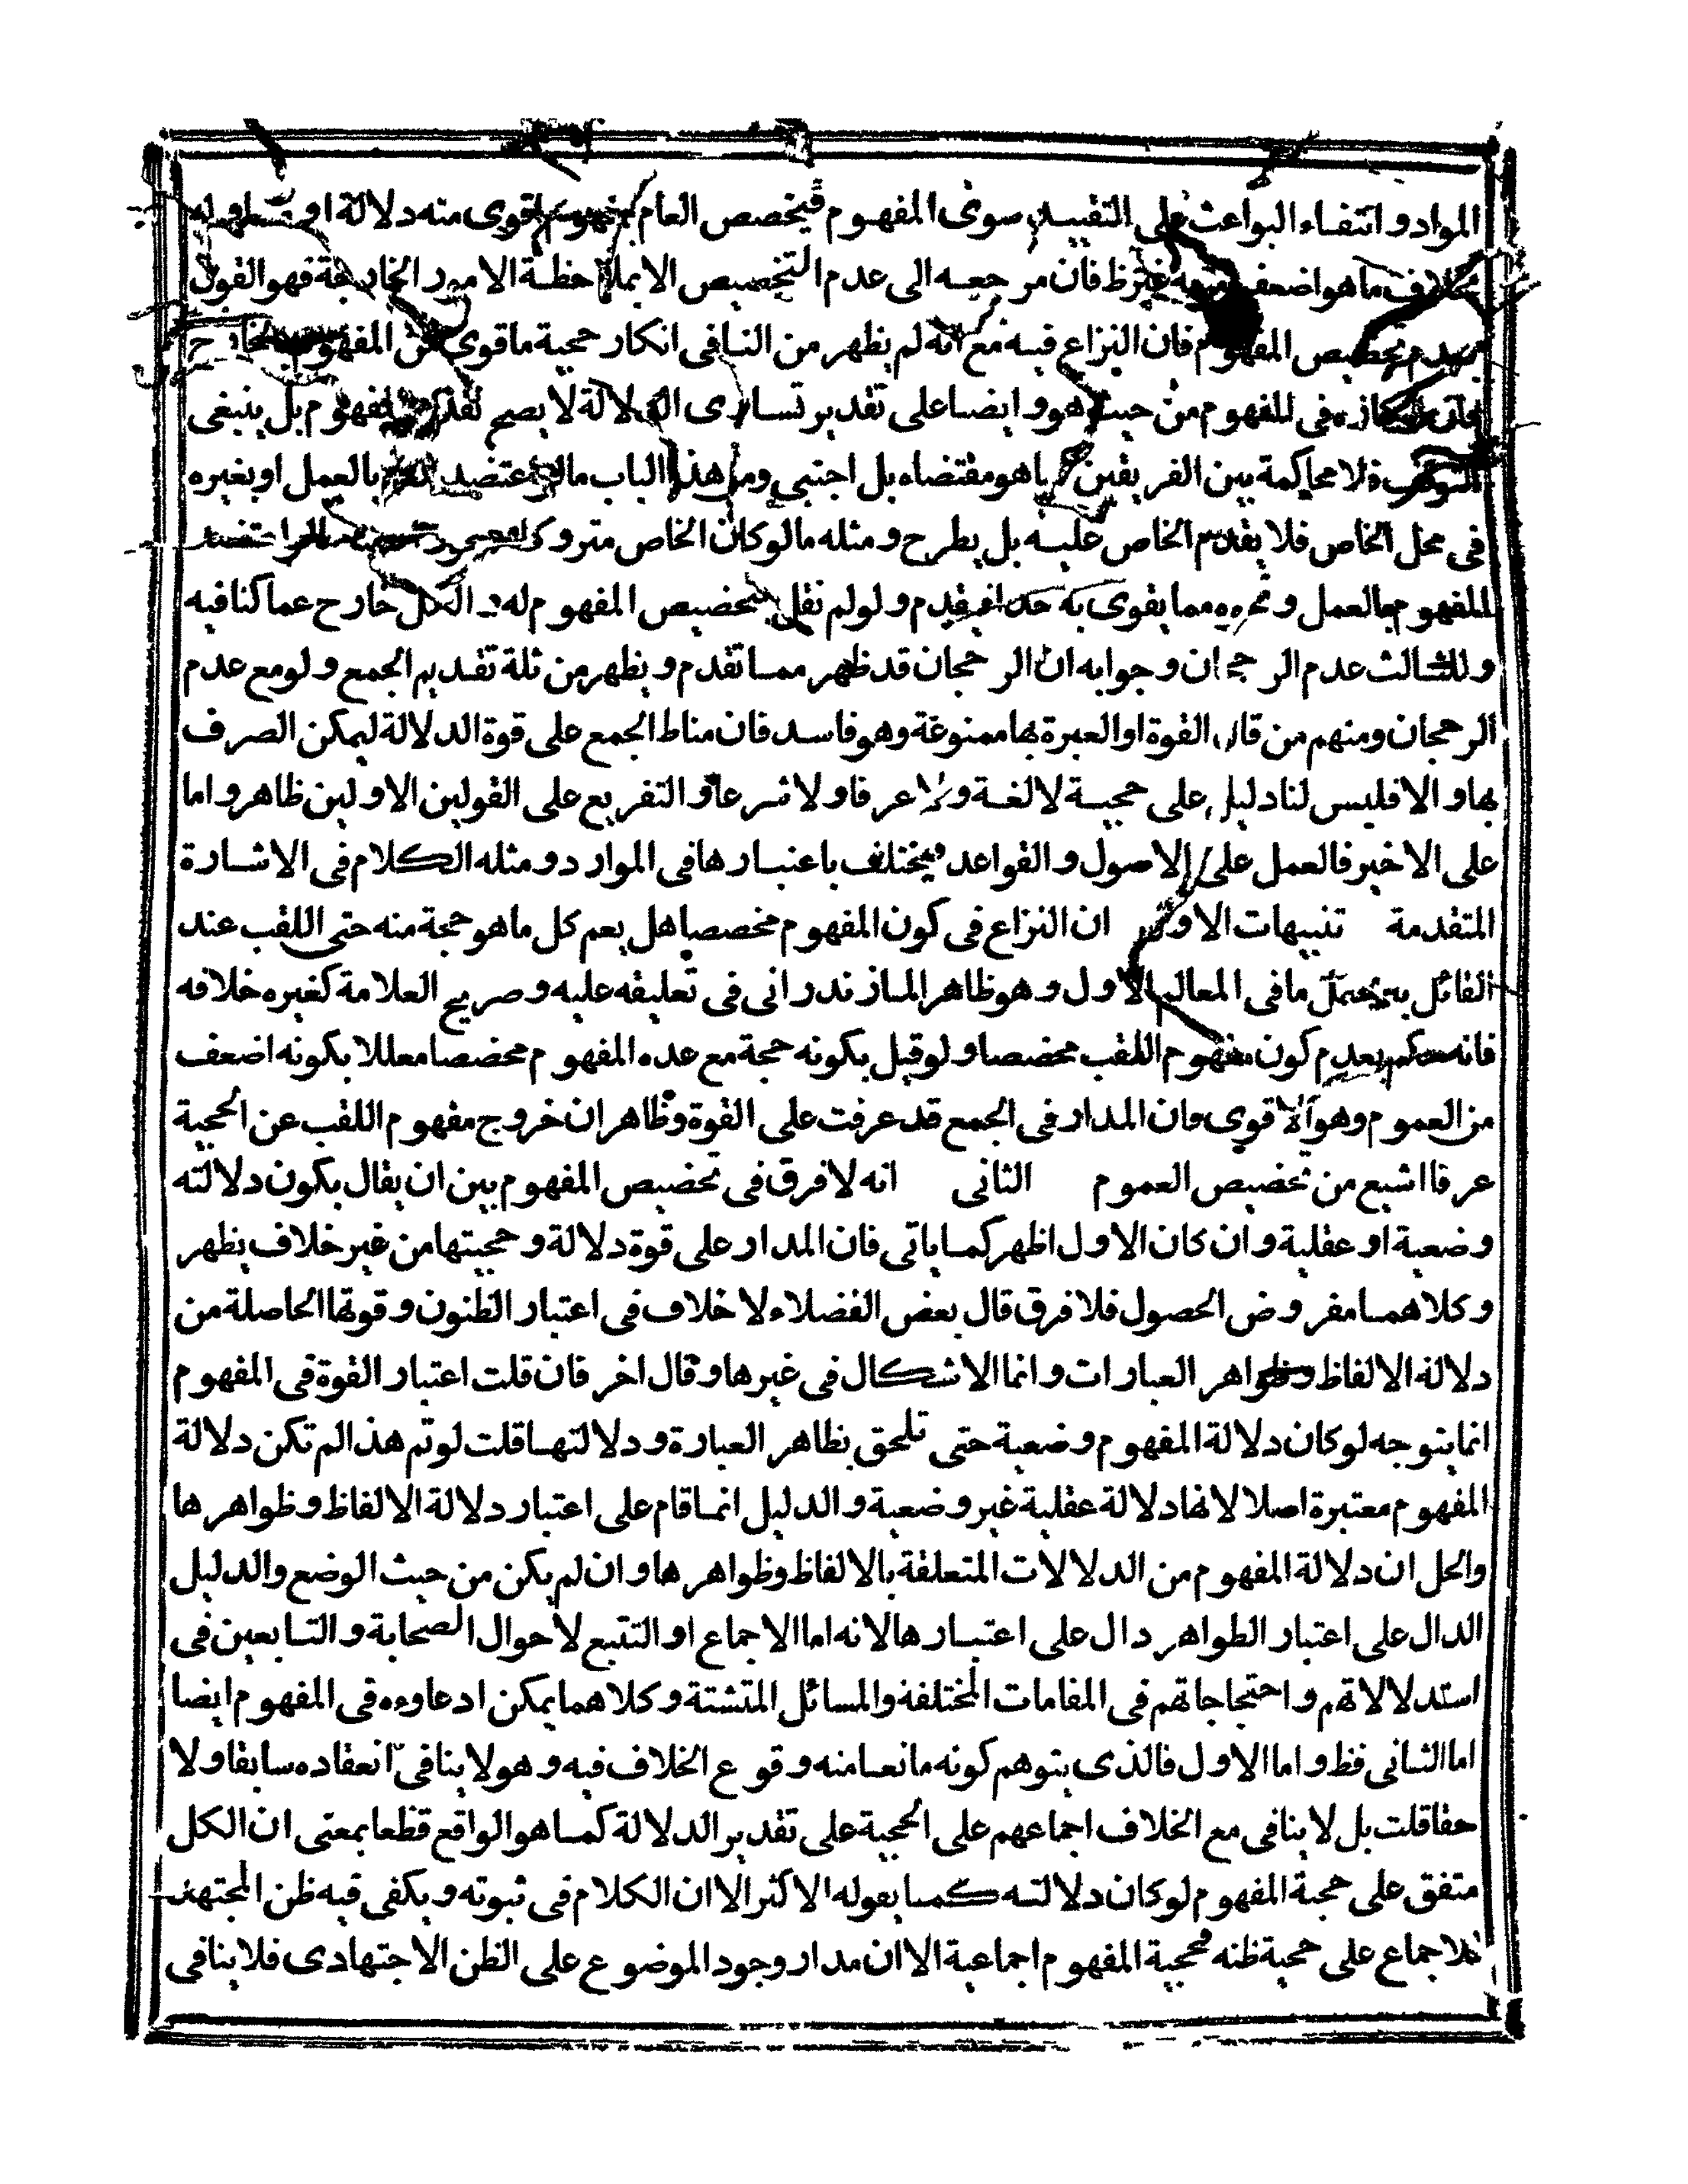 الموارد و انتفاء البواعث على التقييد سوى المفهوم فيخصص العام بمفهوم اقوى منه دلالة او
بخلاف ما هو اضعف منه فان مرجعه الى عدم التخصيص الا بملاحظة الامور الخارجة فهو القول
بعدم تخصيص المفهوم فان النزاع فيه مع انه لم يظهر من النافى انكار حجية ما قوى من المفهوم
فى المفهوم من حيث هو و ايضا على تقدير تساوى الدلالة لا يصح تقديم المفهوم بل ينبغى
التوقف فلا محاكمة بين الفريقين بما هو مقتضاه بل اجنبى ومن هذا الباب ما لو اعتضد العام بالعمل او بغيره
فى محل الخاص فلا يقدم الخاص عليه بل يطرح و مثله ما لو كان الخاص متروكا
المفهوم بالعمل و نحوه مما يقوى به جدا فيقدم و لو لم نقل بتخصيص المفهوم له و الكل خارج عما كنا فيه
و للثالث عدم الرجحان و جوابه ان الرجحان قد ظهر مما تقدم و يظهر من ثلة تقديم الجمع و لو مع عدم
الرجحان و منهم من قال القوة او العبرة بها ممنوعة و هو فاسد فان مناط الجمع على قوة الدلالة ليمكن الصرف
بها و الا فليس لنا دليل على حجية لا لغة و لا عرفا و لا شرعا و التفريع على القولين الاولين ظاهر و اما
على الاخير فالعمل على الاصول و القواعد فيختلف باعتبارها فى الموارد و مثله الكلام فى الاشارة
المتقدمة تنبيهات الاول ان النزاع فى كون المفهوم مخصصا هل يعم كل ما هو حجة منه حتى اللقب عند
القائل به يحتمل ما فى المعالم الاول و هو ظاهر المازندرانى فى تعليقه عليه و صريح العلامة كغيره خلافه
فانه حكم بعدم كون مفهوم اللقب مخصصا و لو قيل بكونه حجة مع عده المفهوم مخصصا معللا بكونه اضعف
من العموم و هو الاقوى فان المدار فى الجمع قد عرفت على القوة و ظاهر ان خروج مفهوم اللقب عن الحجية
عرفا اشيع من تخصيص العموم الثانى انه لا فرق فى تخصيص المفهوم بين ان يقال بكون دلالته
وضعية او عقلية و ان كان الاول اظهر كما ياتى فان المدار على قوة دلالة و حجيتها من غير خلاف يظهر
و كلاهما مفروض الحصول فلا فرق قال بعض الفضلاء لا خلاف فى اعتبار الظنون و قوتها الحاصلة من
دلالة الالفاظ و ظواهر العبارات و انما الاشكال فى غيرها و قال اخر فان قلت اعتبار القوة فى المفهوم
انما يتوجه لو كان دلالة المفهوم وضعية حتى تلحق بظاهر العبارة و دلالتها قلت لو تم هذا لم تكن دلالة
المفهوم معتبرة اصلا لانها دلالة عقلية غير وضعية و الدليل انما قام على اعتبار دلالة الالفاظ و ظواهرها
و الحل ان دلالة المفهوم من الدلالات المتعلقة بالالفاظ و ظواهرها و ان لم يكن من حيث الوضع و الدليل
الدال على اعتبار الظواهر دال على اعتبارها لانه اما الاجماع او التتبع لاحوال الصحابة و التابعين فى
استدلالاتهم و احتجاجاتهم فى المقامات المختلفة و المسائل المتشتة و كلاهما يمكن ادعاوءه فى المفهوم ايضا
اما الثانى فظ و اما الاول فالذى يتوهم كونه مانعا منه وقوع الخلاف فيه و هو لا ينافى انعقاده سابقا و لا
حقا قلت بل لا ينافى مع الخلاف اجماعهم على الحجية على تقدير الدلالة كما هو الواقع قطعا بمعنى ان الكل
متفق على حجية المفهوم لو كان دلالته كما يقوله الاكثر الا ان الكلام فى ثبوته و يكفى فيه ظن المجتهد
للاجماع على حجية ظنه فحجية المفهوم اجماعية الا ان مدار وجود الموضوع على الظن الاجتهادى فلا ينافى